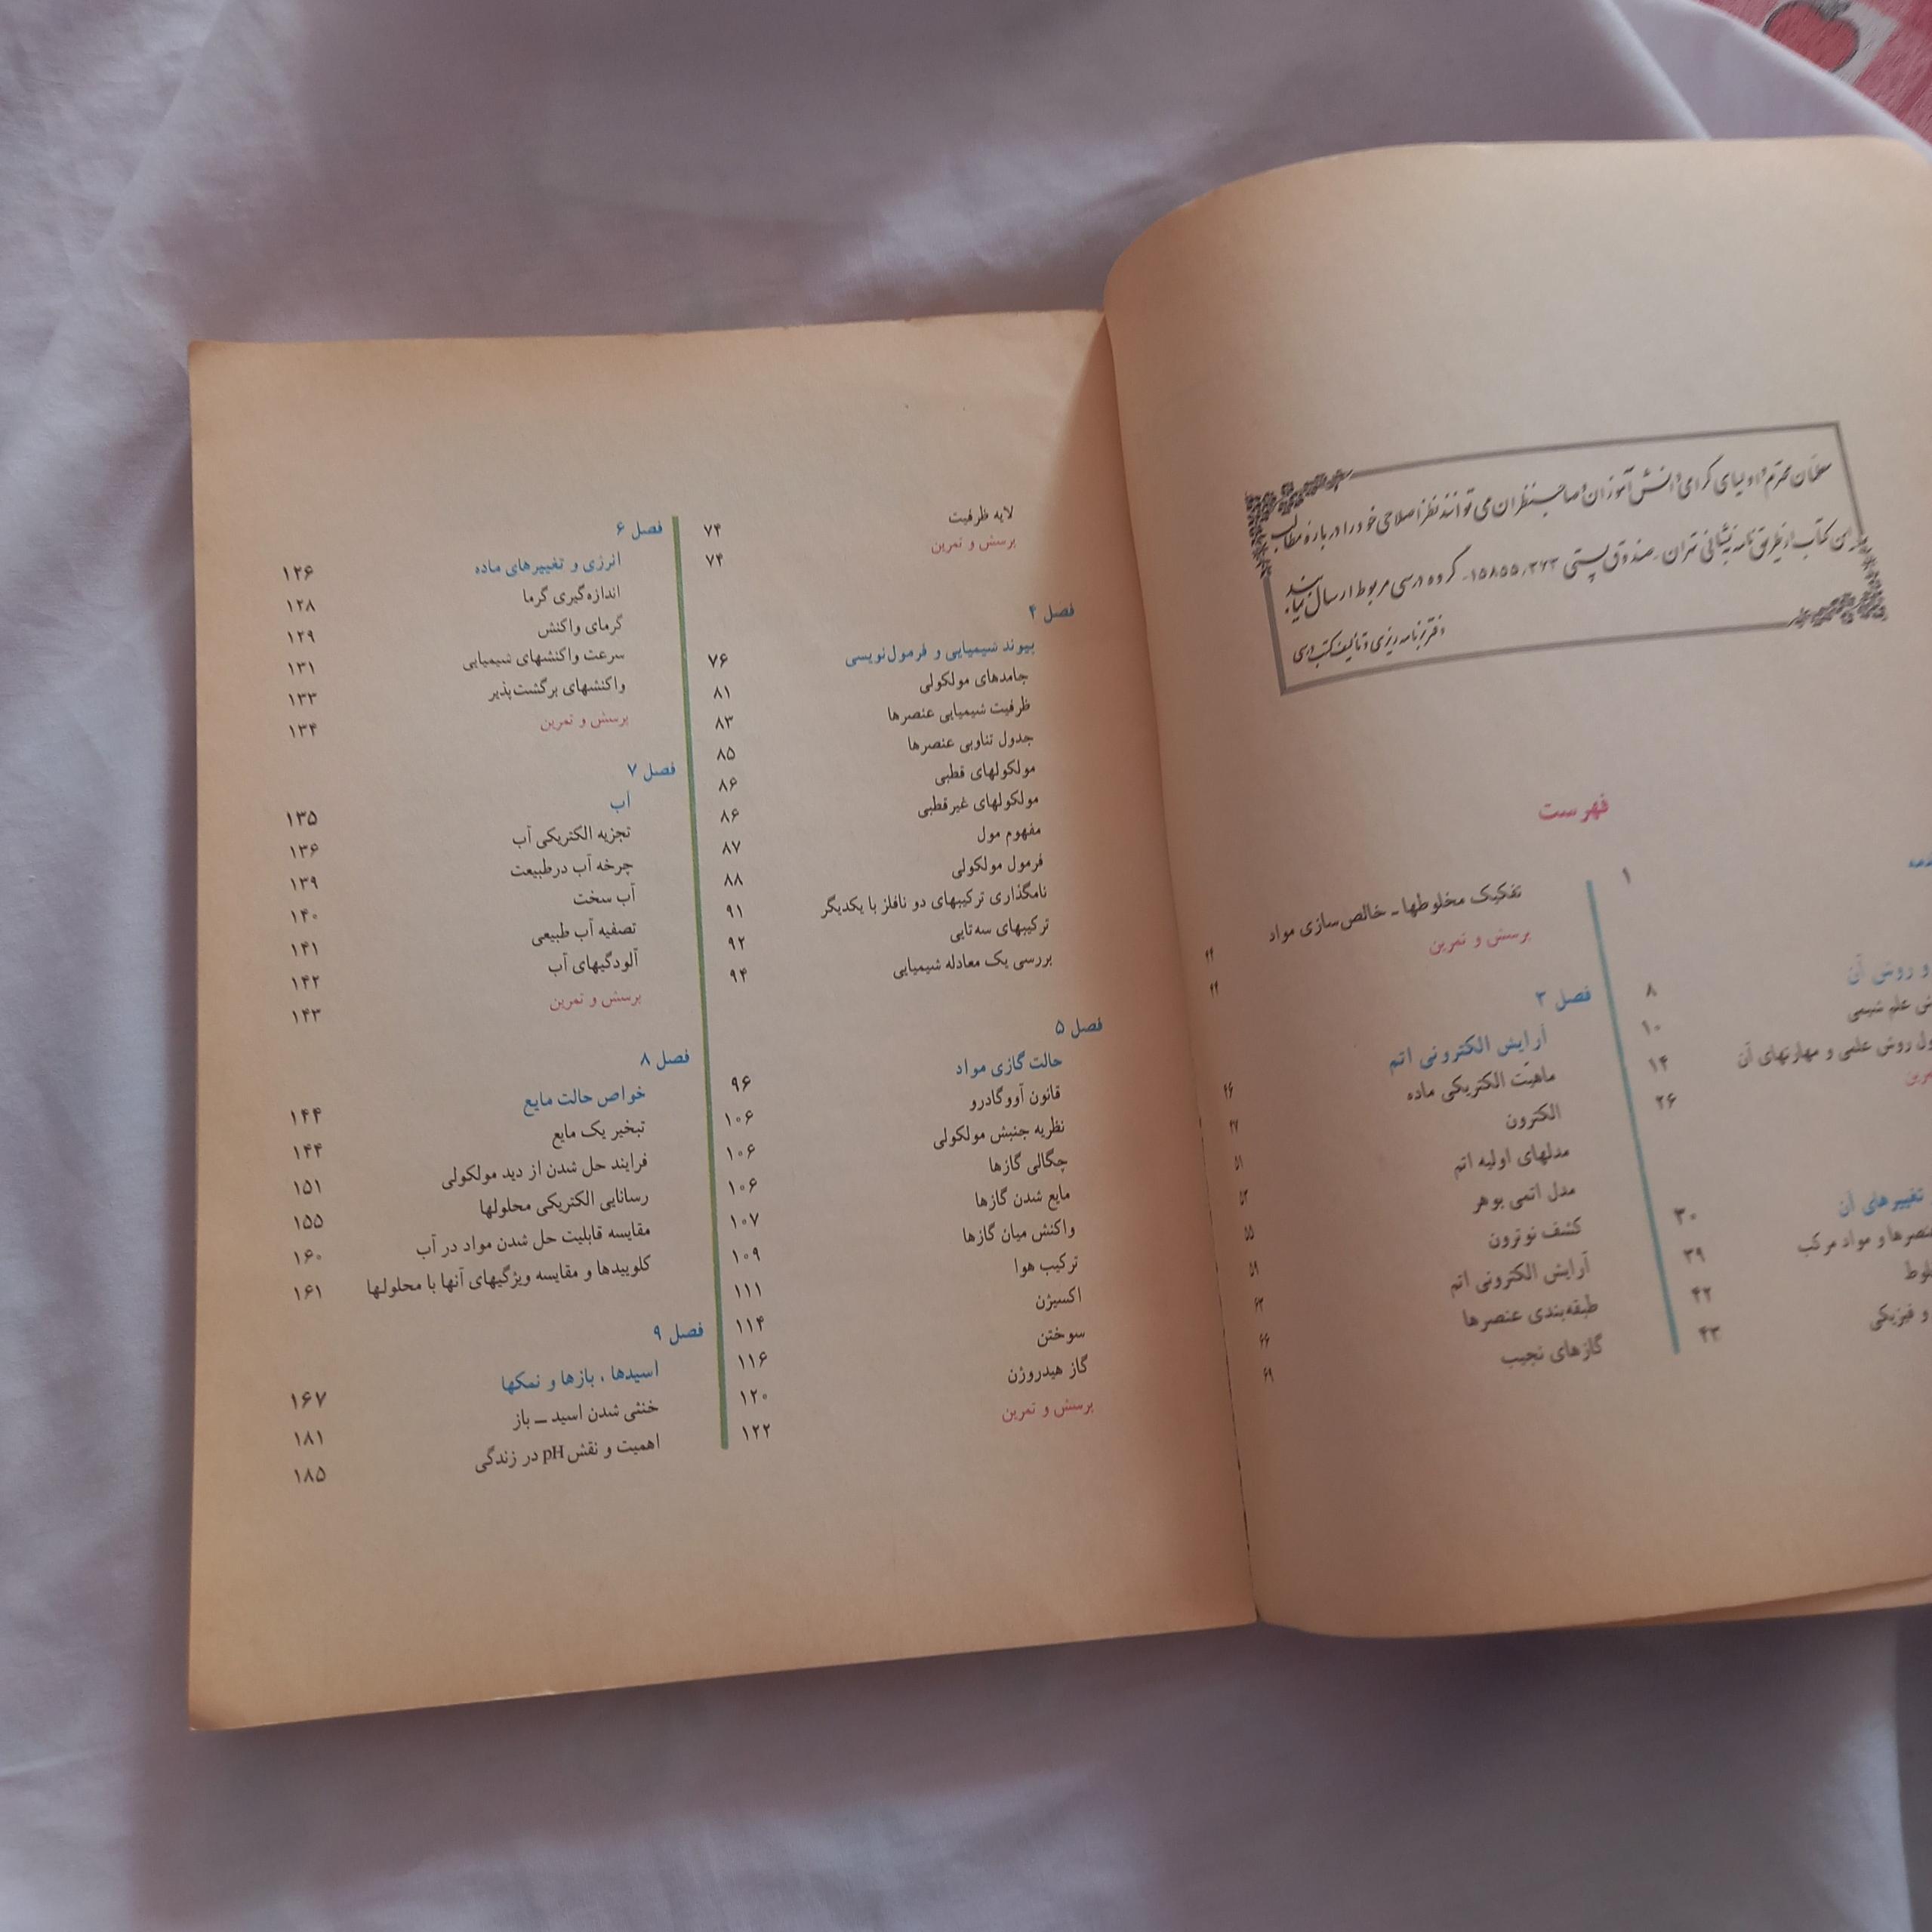 معلمان محترم و اولیای گرامی دانش‌آموزان و صاحبنظران می‌توانند نظر اصلاحی خود را درباره مطالب
این کتاب از طریق نامه به نشانی تهران ـ صندوق پستی ۱۵۸۵۵/۳۶۳ ـ گروه درسی مربوط ارسال نمایند.
دفتر برنامه‌ریزی و تألیف کتب درسی
فهرست
۱
و روش آن ۸
علم شیمی ۱۰
روش علمی و مهارتهای آن ۱۴
۲۶
تغییرهای آن ۳۰
و مواد مرکب ۳۹
۴۲
و فیزیکی ۴۳
تفکیک مخلوطها ـ خالص‌سازی مواد ۴۴
پرسش و تمرین ۴۴
فصل ۳
آرایش الکترونی اتم ۴۶
ماهیّت الکتریکی ماده ۴۷
الکترون ۵۱
مدلهای اولیه اتم ۵۳
مدل اتمی بوهر ۵۵
کشف نوترون ۵۹
آرایش الکترونی اتم ۶۳
طبقه‌بندی عنصرها ۶۶
گازهای نجیب ۶۹
لایه ظرفیت ۷۴
پرسش و تمرین ۷۴
فصل ۴
پیوند شیمیایی و فرمول‌نویسی ۷۶
جامدهای مولکولی ۸۱
ظرفیت شیمیایی عنصرها ۸۳
جدول تناوبی عنصرها ۸۵
مولکولهای قطبی ۸۶
مولکولهای غیرقطبی ۸۶
مفهوم مول ۸۷
فرمول مولکولی ۸۸
نامگذاری ترکیبهای دو نافلز با یکدیگر ۹۱
ترکیبهای سه‌تایی ۹۲
بررسی یک معادله شیمیایی ۹۴
فصل ۵
حالت گازی مواد ۹۶
قانون آووگادرو ۱۰۶
نظریه جنبش مولکولی ۱۰۶
چگالی گازها ۱۰۶
مایع شدن گازها ۱۰۷
واکنش میان گازها ۱۰۹
ترکیب هوا ۱۱۱
اکسیژن ۱۱۴
سوختن ۱۱۶
گاز هیدروژن ۱۲۰
پرسش و تمرین ۱۲۲
فصل ۶
انرژی و تغییرهای ماده ۱۲۶
اندازه‌گیری گرما ۱۲۸
گرمای واکنش ۱۲۹
سرعت واکنشهای شیمیایی ۱۳۱
واکنشهای برگشت‌پذیر ۱۳۳
پرسش و تمرین ۱۳۴
فصل ۷
آب ۱۳۵
تجزیه الکتریکی آب ۱۳۶
چرخه آب درطبیعت ۱۳۹
آب سخت ۱۴۰
تصفیه آب طبیعی ۱۴۱
آلودگیهای آب ۱۴۲
پرسش و تمرین ۱۴۳
فصل ۸
خواص حالت مایع ۱۴۴
تبخیر یک مایع ۱۴۴
فرایند حل شدن از دید مولکولی ۱۵۱
رسانایی الکتریکی محلولها ۱۵۵
مقایسه قابلیت حل شدن مواد در آب ۱۶۰
کلوییدها و مقایسه ویژگیهای آنها با محلولها ۱۶۱
فصل ۹
اسیدها ، بازها و نمکها ۱۶۷
خنثی شدن اسید ــ باز ۱۸۱
اهمیت و نقش pH در زندگی ۱۸۵